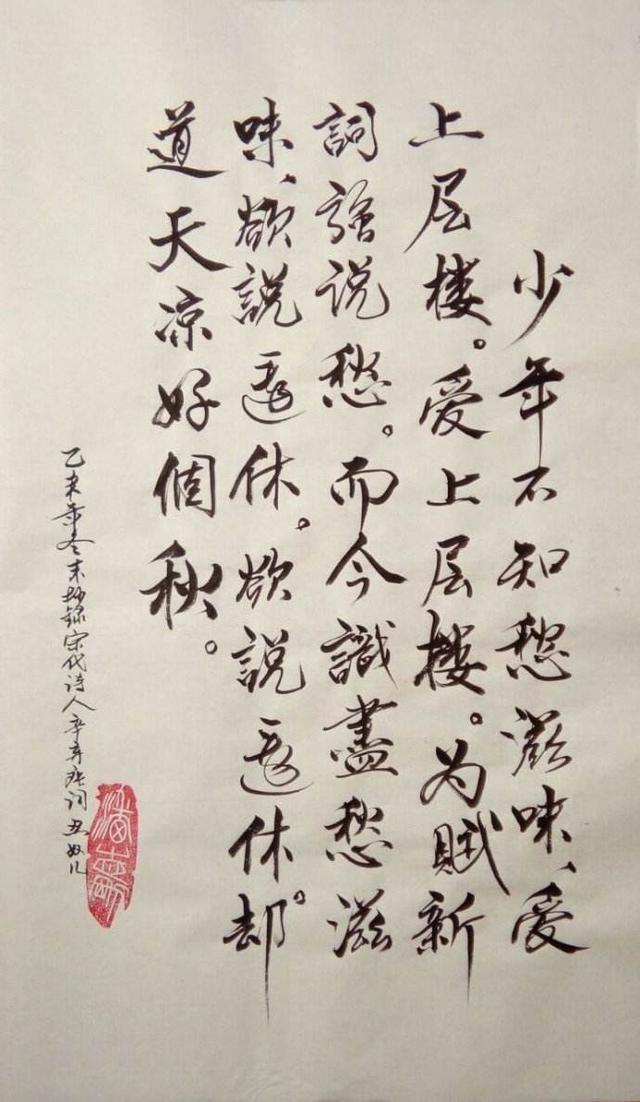 少年不知愁滋味、爱
上层楼。爱上层楼。为赋新
詞强说愁。而今識盡愁滋
味、欲說還休。欲說還休。却
道天凉好個秋。
乙未年冬末抄録宋代诗人辛弃疾词丑奴儿